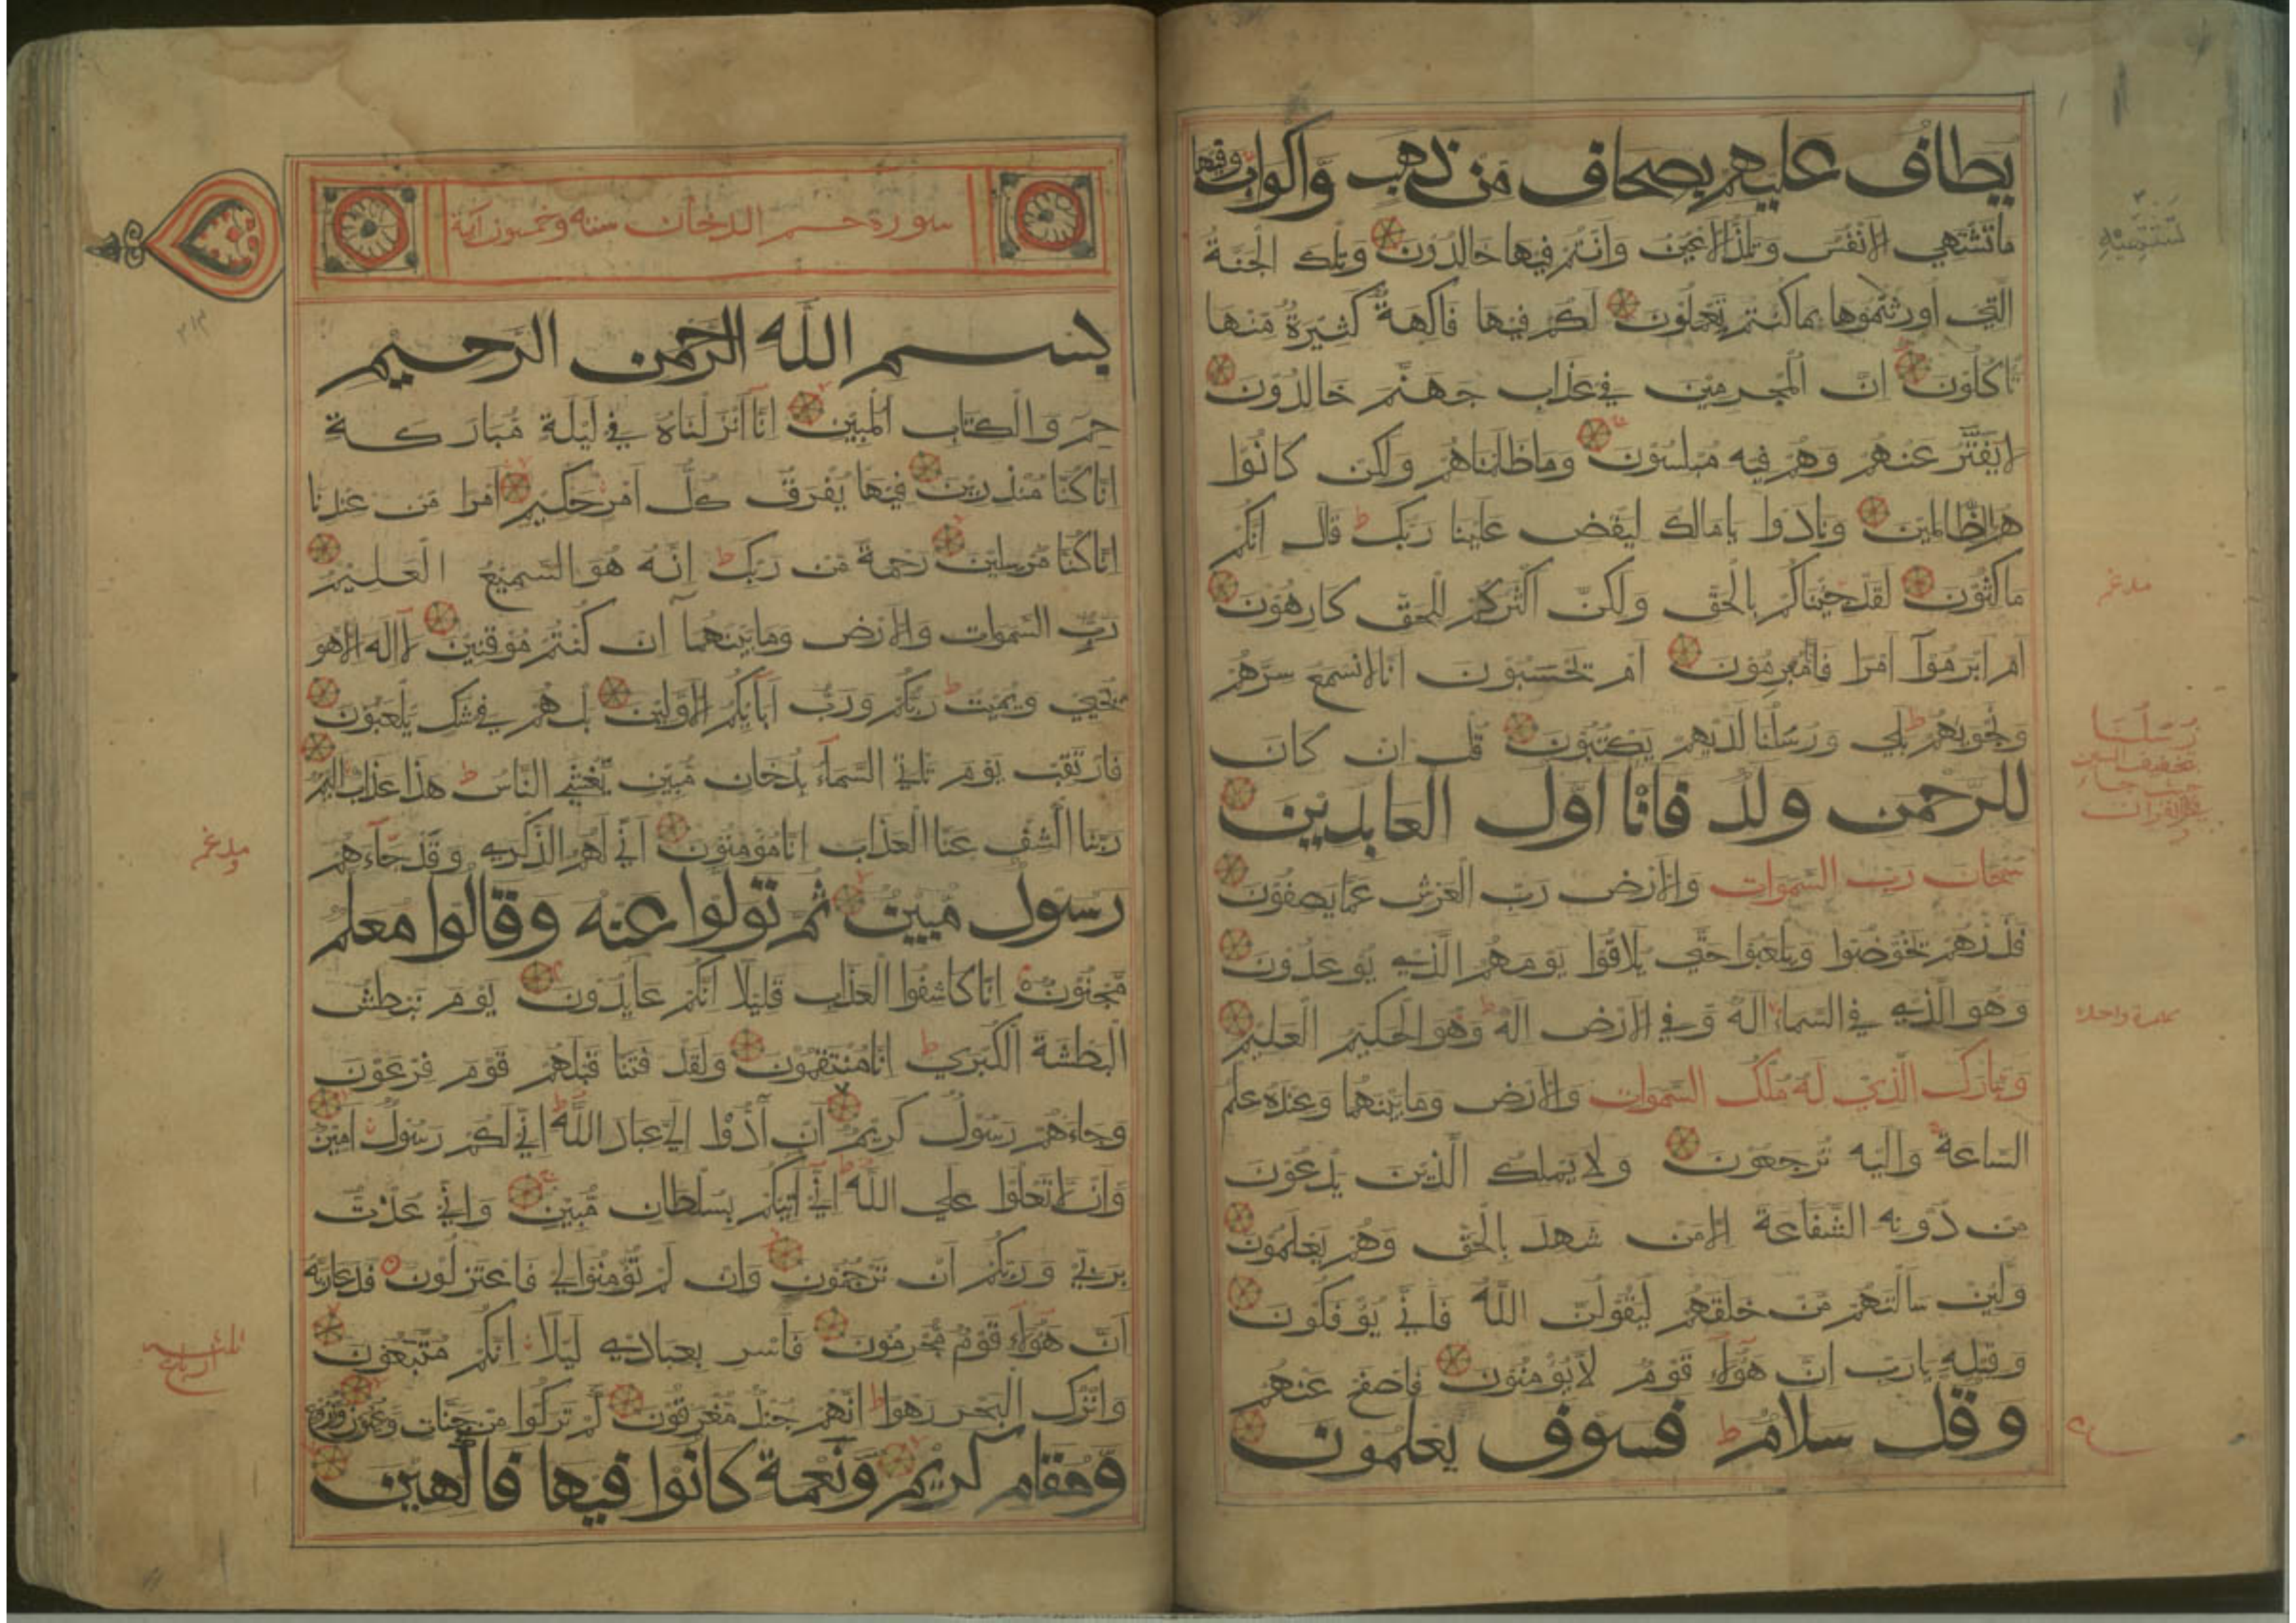 يطاف عليهم بصحاف من ذهب وأكواب وفيها
ما تشتهي الأنفس وتلذ الأعين وأنتم فيها خالدون وتلك الجنة
التي أورثتموها بما كنتم تعملون لكم فيها فاكهة كثيرة منها
تأكلون إن المجرمين في عذاب جهنم خالدون
لا يفتر عنهم وهم فيه مبلسون وما ظلمناهم ولكن كانوا
هم الظالمين ونادوا يا مالك ليقض علينا ربك ط قال إنكم
ماكثون لقد جئناكم بالحق ولكن أكثركم للحق كارهون
أم أبرموا أمرا فإنا مبرمون أم تحسبون أنا لا نسمع سرهم
ونجويهم ط بلي ورسلنا لديهم يكتبون قل إن كان
للرحمن ولد فأنا أول العابدين
سبحان رب السموات والأرض رب العرش عما يصفون
فذرهم يخوضوا ويلعبوا حتي يلاقوا يومهم الذي يوعدون
وهو الذي في السماء إله وفي الأرض إله ط وهو الحكيم العليم
وتبارك الذي له ملك السموات والأرض وما بينهما وعنده علم
الساعة وإليه ترجعون ولا يملك الذين يدعون
من دونه الشفاعة إلا من شهد بالحق وهم يعلمون
ولئن سألتهم من خلقهم ليقولن الله فأني يؤفكون
وقيله يا رب إن هؤلاء قوم لا يؤمنون فاصفح عنهم
وقل سلام ط فسوف يعلمون
مدغم
رسلنا
بتخفيف السين
حيث جاء
في القرآن
سورة حم الدخان ستة وخمسون آية
بسم الله الرحمن الرحيم
حم والكتاب المبين إنا أنزلناه في ليلة مباركة
إنا كنا منذرين فيها يفرق كل أمر حكيم أمرا من عندنا
إنا كنا مرسلين رحمة من ربك ط إنه هو السميع العليم
رب السموات والأرض وما بينهما إن كنتم موقنين لا إله إلا هو
يحيي ويميت ط ربكم ورب آبائكم الأولين بل هم في شك يلعبون
فارتقب يوم تأتي السماء بدخان مبين يغشي الناس ط هذا عذاب أليم
ربنا اكشف عنا العذاب إنا مؤمنون أني لهم الذكري وقد جاءهم
رسول مبين ثم تولوا عنه وقالوا معلم
مجنون إنا كاشفوا العذاب قليلا إنكم عائدون يوم نبطش
البطشة الكبري ط إنا منتقمون ولقد فتنا قبلهم قوم فرعون
وجاءهم رسول كريم أن أدوا إلي عباد الله ط إني لكم رسول أمين
وأن لا تعلوا علي الله ط إني آتيكم بسلطان مبين وإني عذت
بربي وربكم أن ترجمون وإن لم تؤمنوا لي فاعتزلون فدعا ربه
أن هؤلاء قوم مجرمون فأسر بعبادي ليلا إنكم متبعون
واترك البحر رهوا ط إنهم جند مغرقون كم تركوا من جنات وعيون وزروع
ومقام كريم ونعمة كانوا فيها فاكهين
مدغم